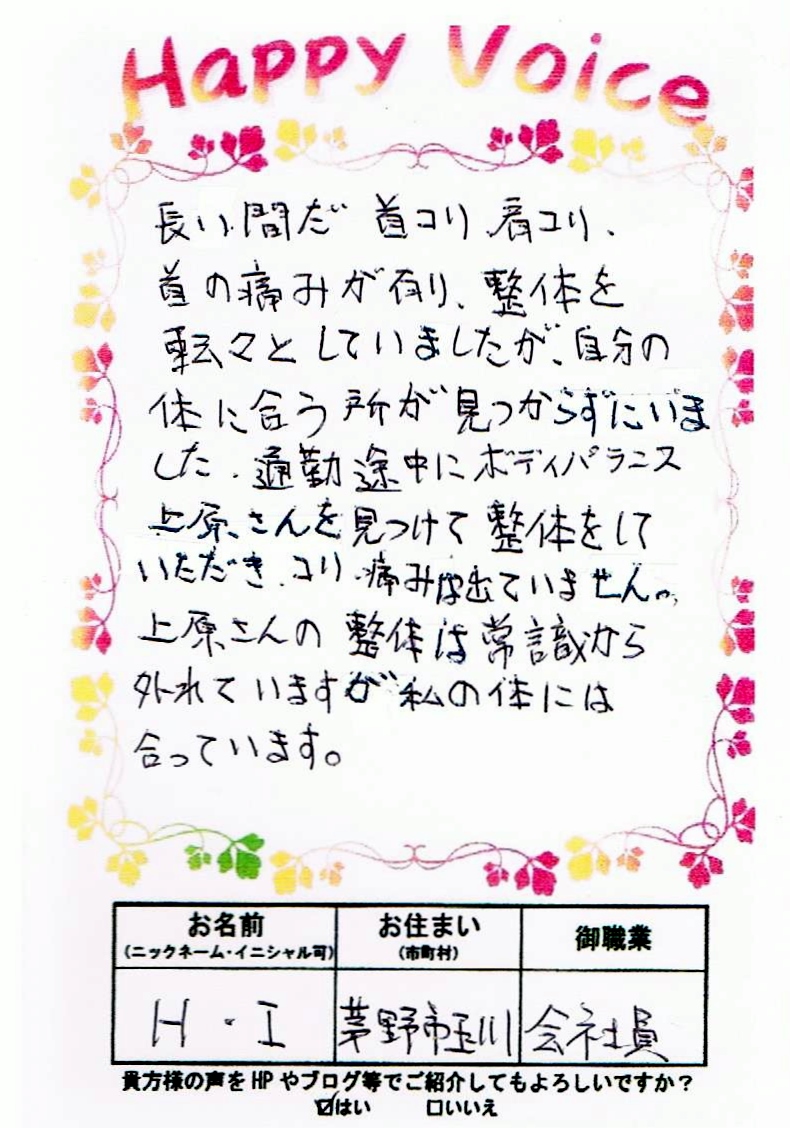 Happy Voice
長い間だ 首コリ、肩コリ、
首の痛みが有り、整体を
転々としていましたが、自分の
体に合う所が見つからずにいま
した。通勤途中にボディバランス
上原さんを見つけて整体をして
いただき、コリ、痛みは出ていません。
上原さんの整体は常識から
外れていますが私の体には
合っています。
お名前 お住まい 御職業
(ニックネーム・イニシャル可) (市町村)
H・I 茅野市玉川 会社員
貴方様の声をHPやブログ等でご紹介してもよろしいですか？
☑はい □いいえ